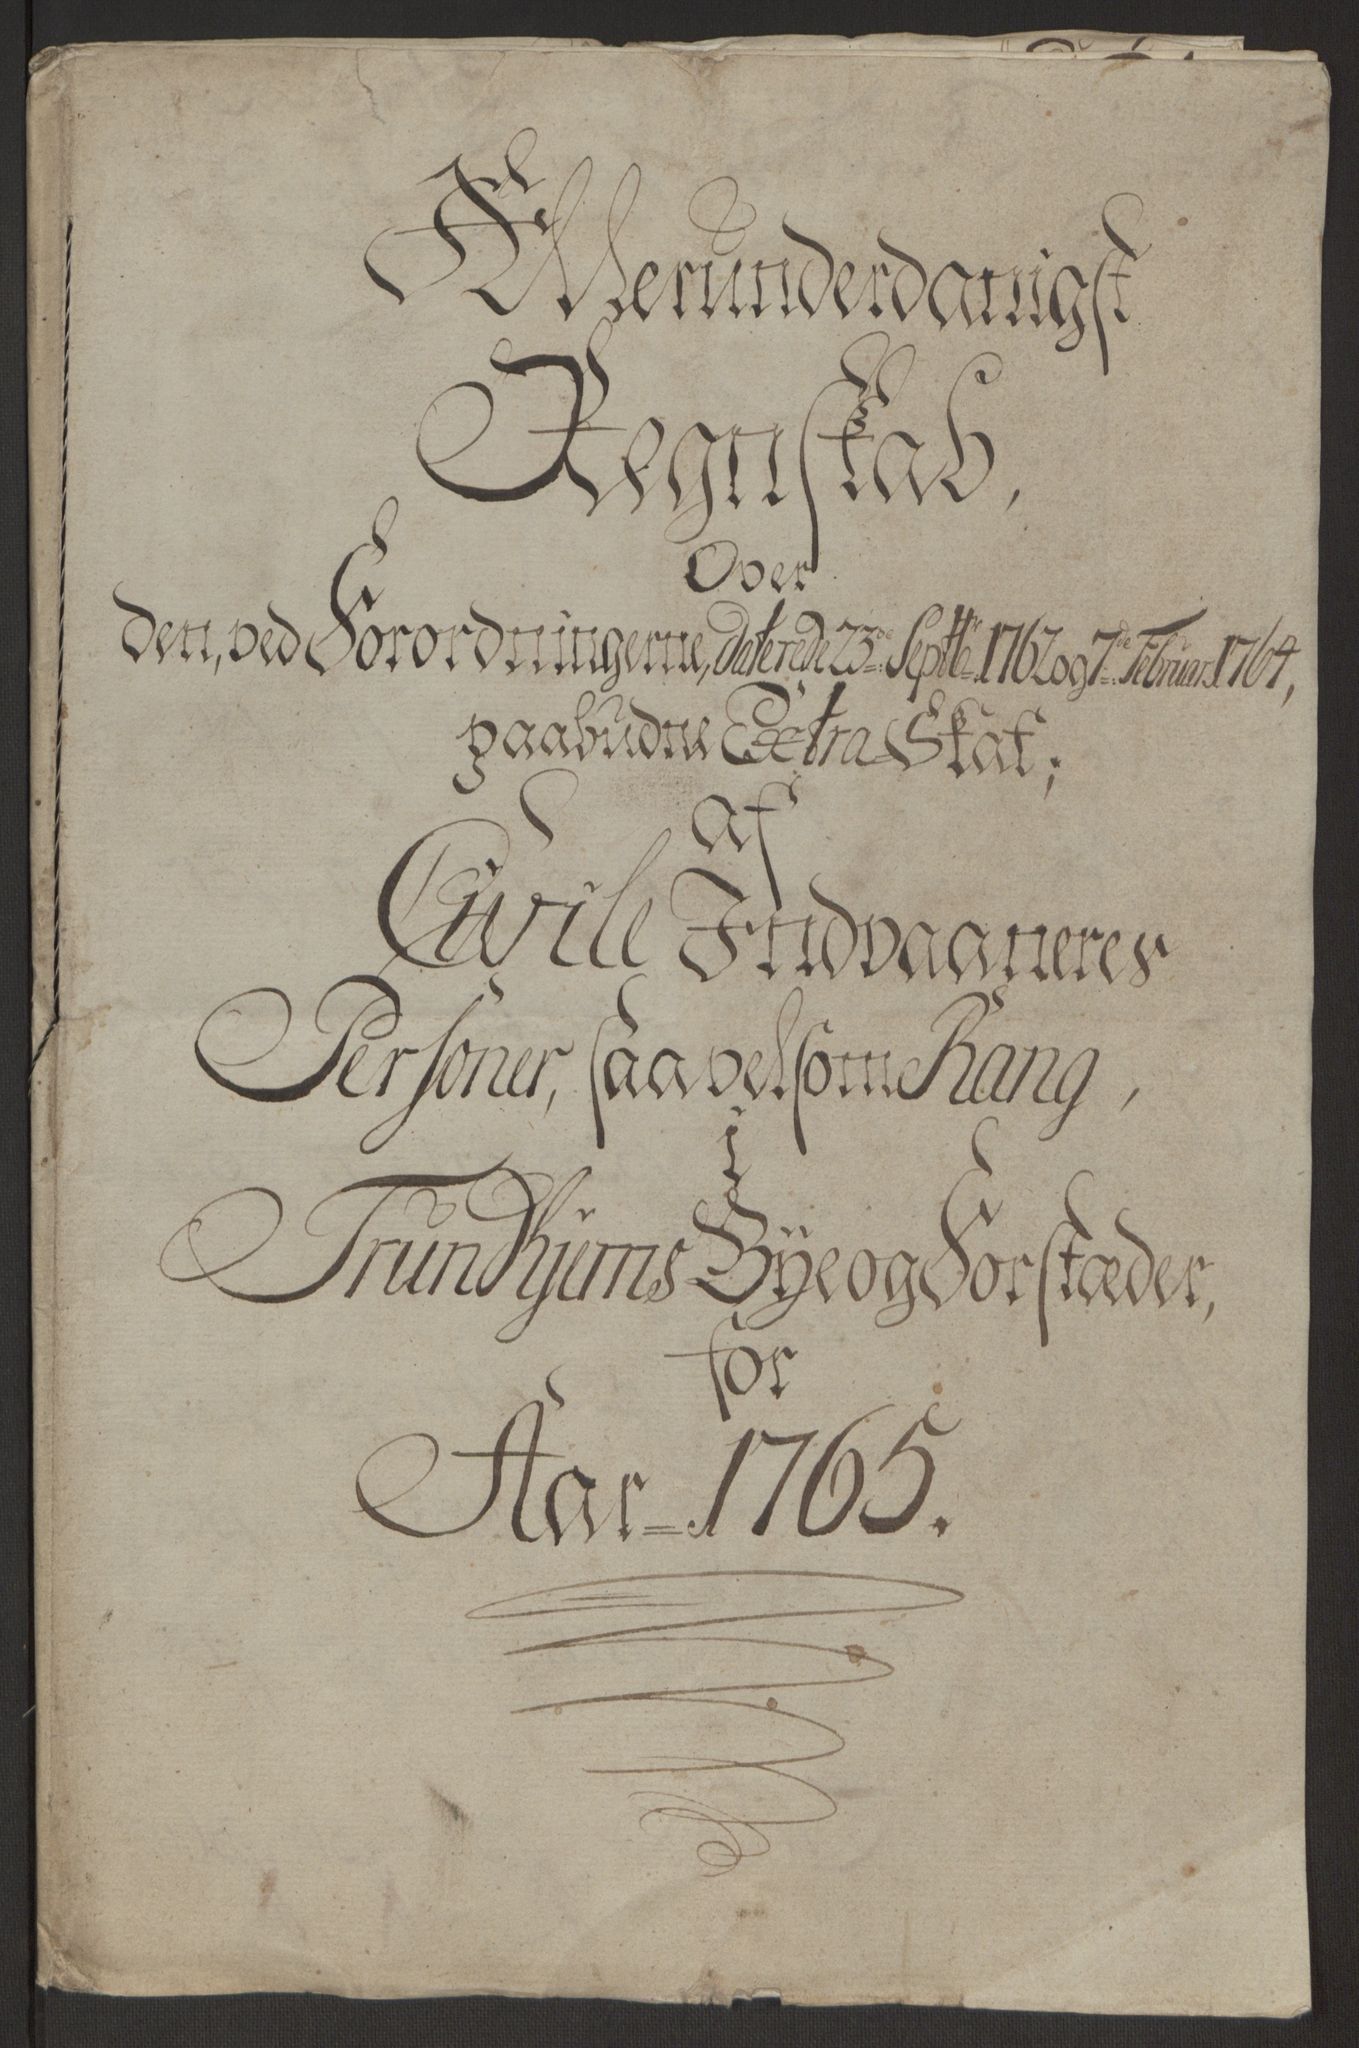 Allerunderdanigst
Regnskab,
Over
den, ved Forordningerne, daterede 23de Septbr 1762 og 7de Februar 1764,
paabudne Extra-Skat;
af
Civile Indvaaneres
Personer, saavelsom Rang,
i
Trundhjems Bye og Forstæder,
for
Aar = 1765.